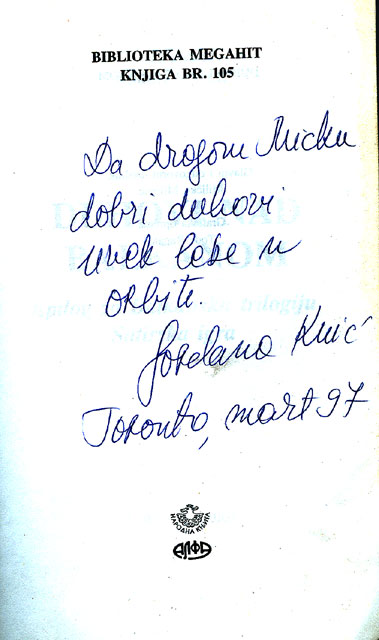 BIBLIOTEKA MEGAHIT
KNJIGA BR. 105
Da dragom Micku
dobri duhovi
uvek lete u
orbiti.
Gordana Knić
Toronto, mart 97
НАРОДНА КЊИГА
АЛФА